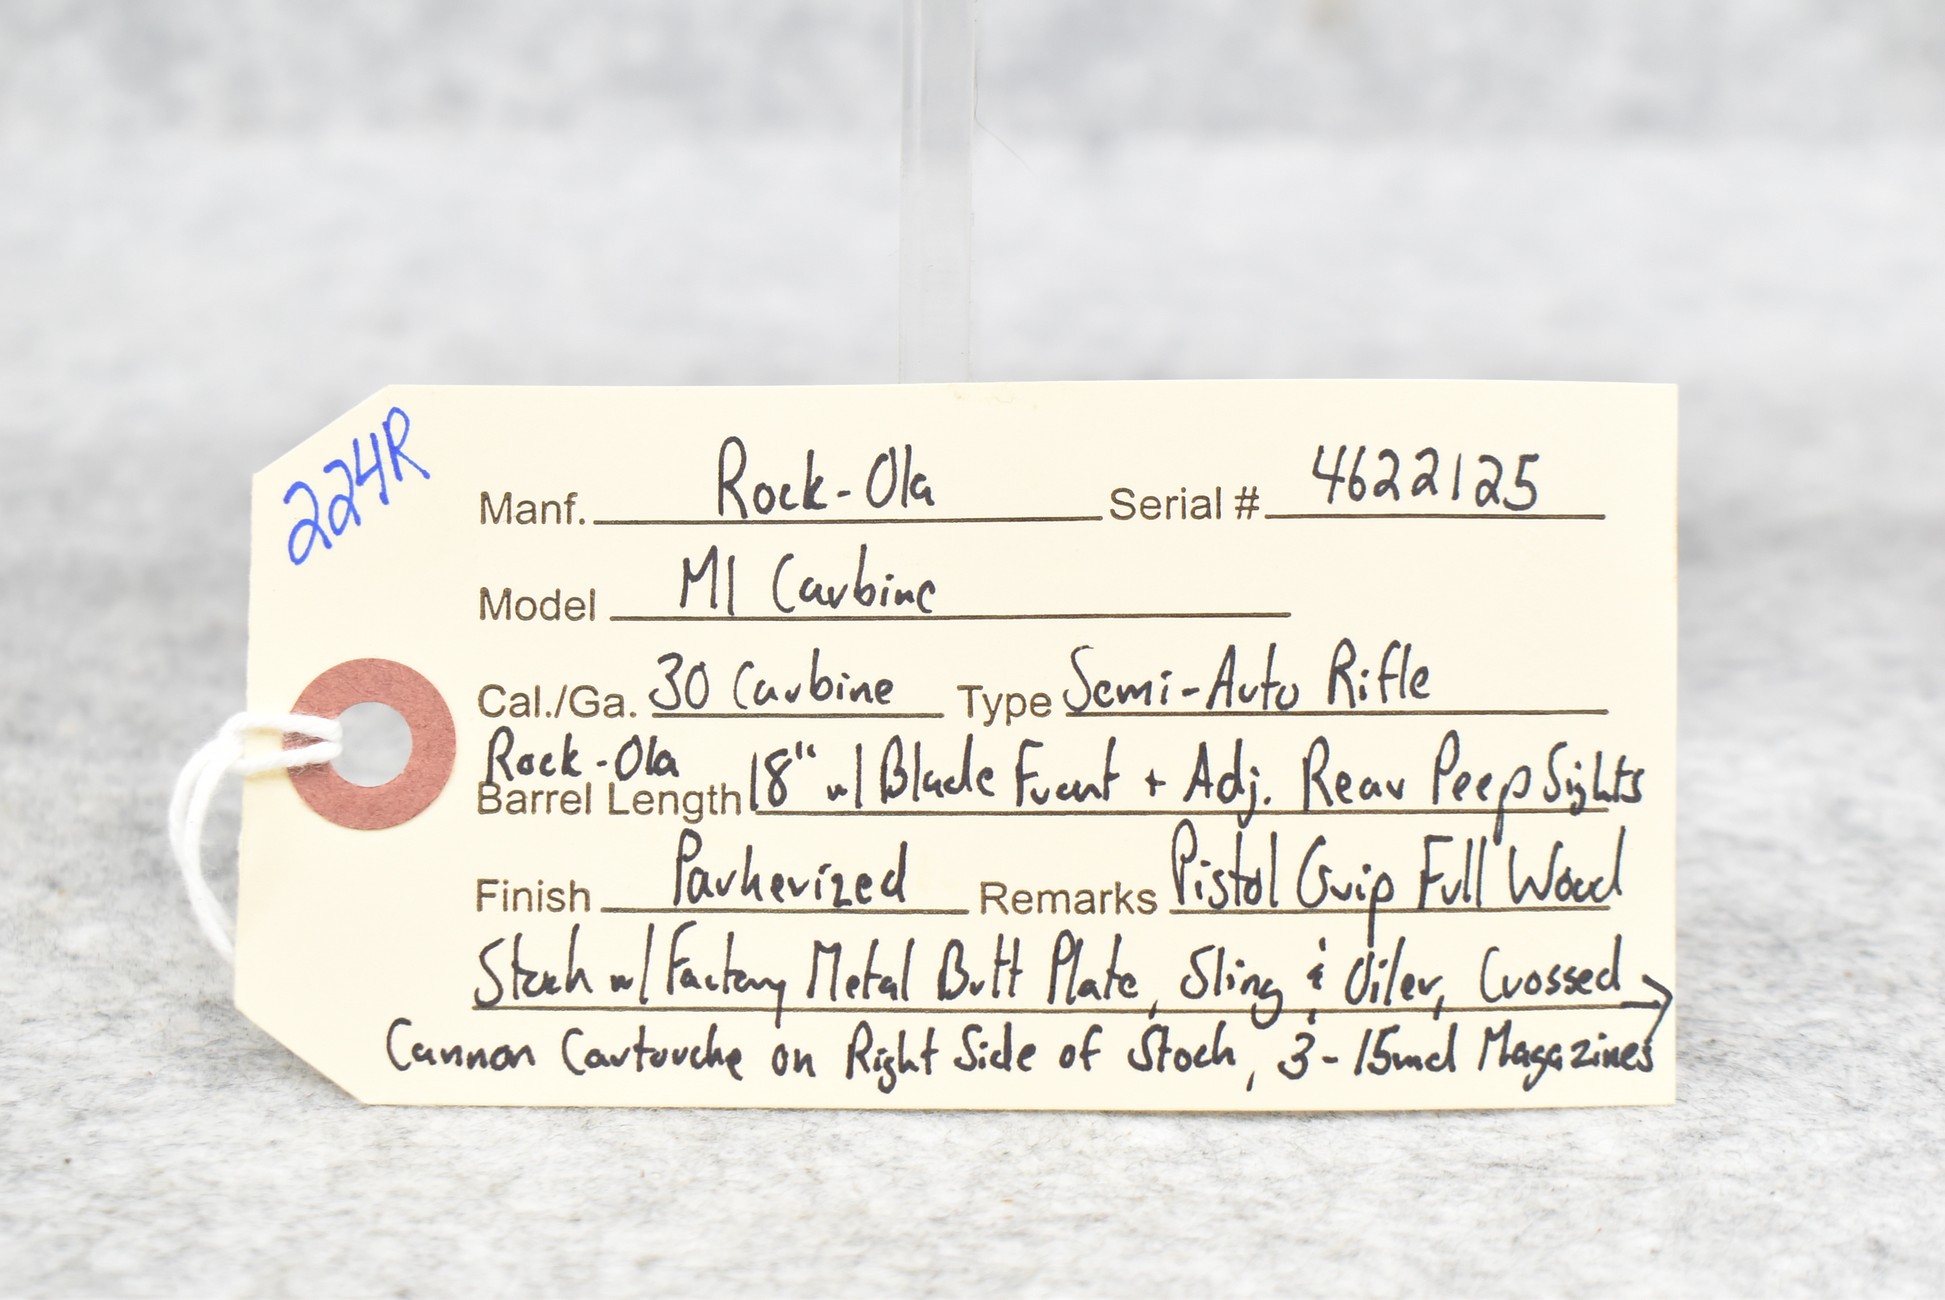 224R
Manf. Rock-Ola Serial # 4622125
Model M1 Carbine
Cal./Ga. 30 Carbine Type Semi-Auto Rifle
Rock-Ola
Barrel Length 18" w/ Blade Front + Adj. Rear Peep Sights
Finish Parkerized Remarks Pistol Grip Full Wood
Stock w/ Factory Metal Butt Plate, Sling & Oiler, Crossed →
Cannon Cartouche on Right Side of Stock, 3-15rnd Magazines